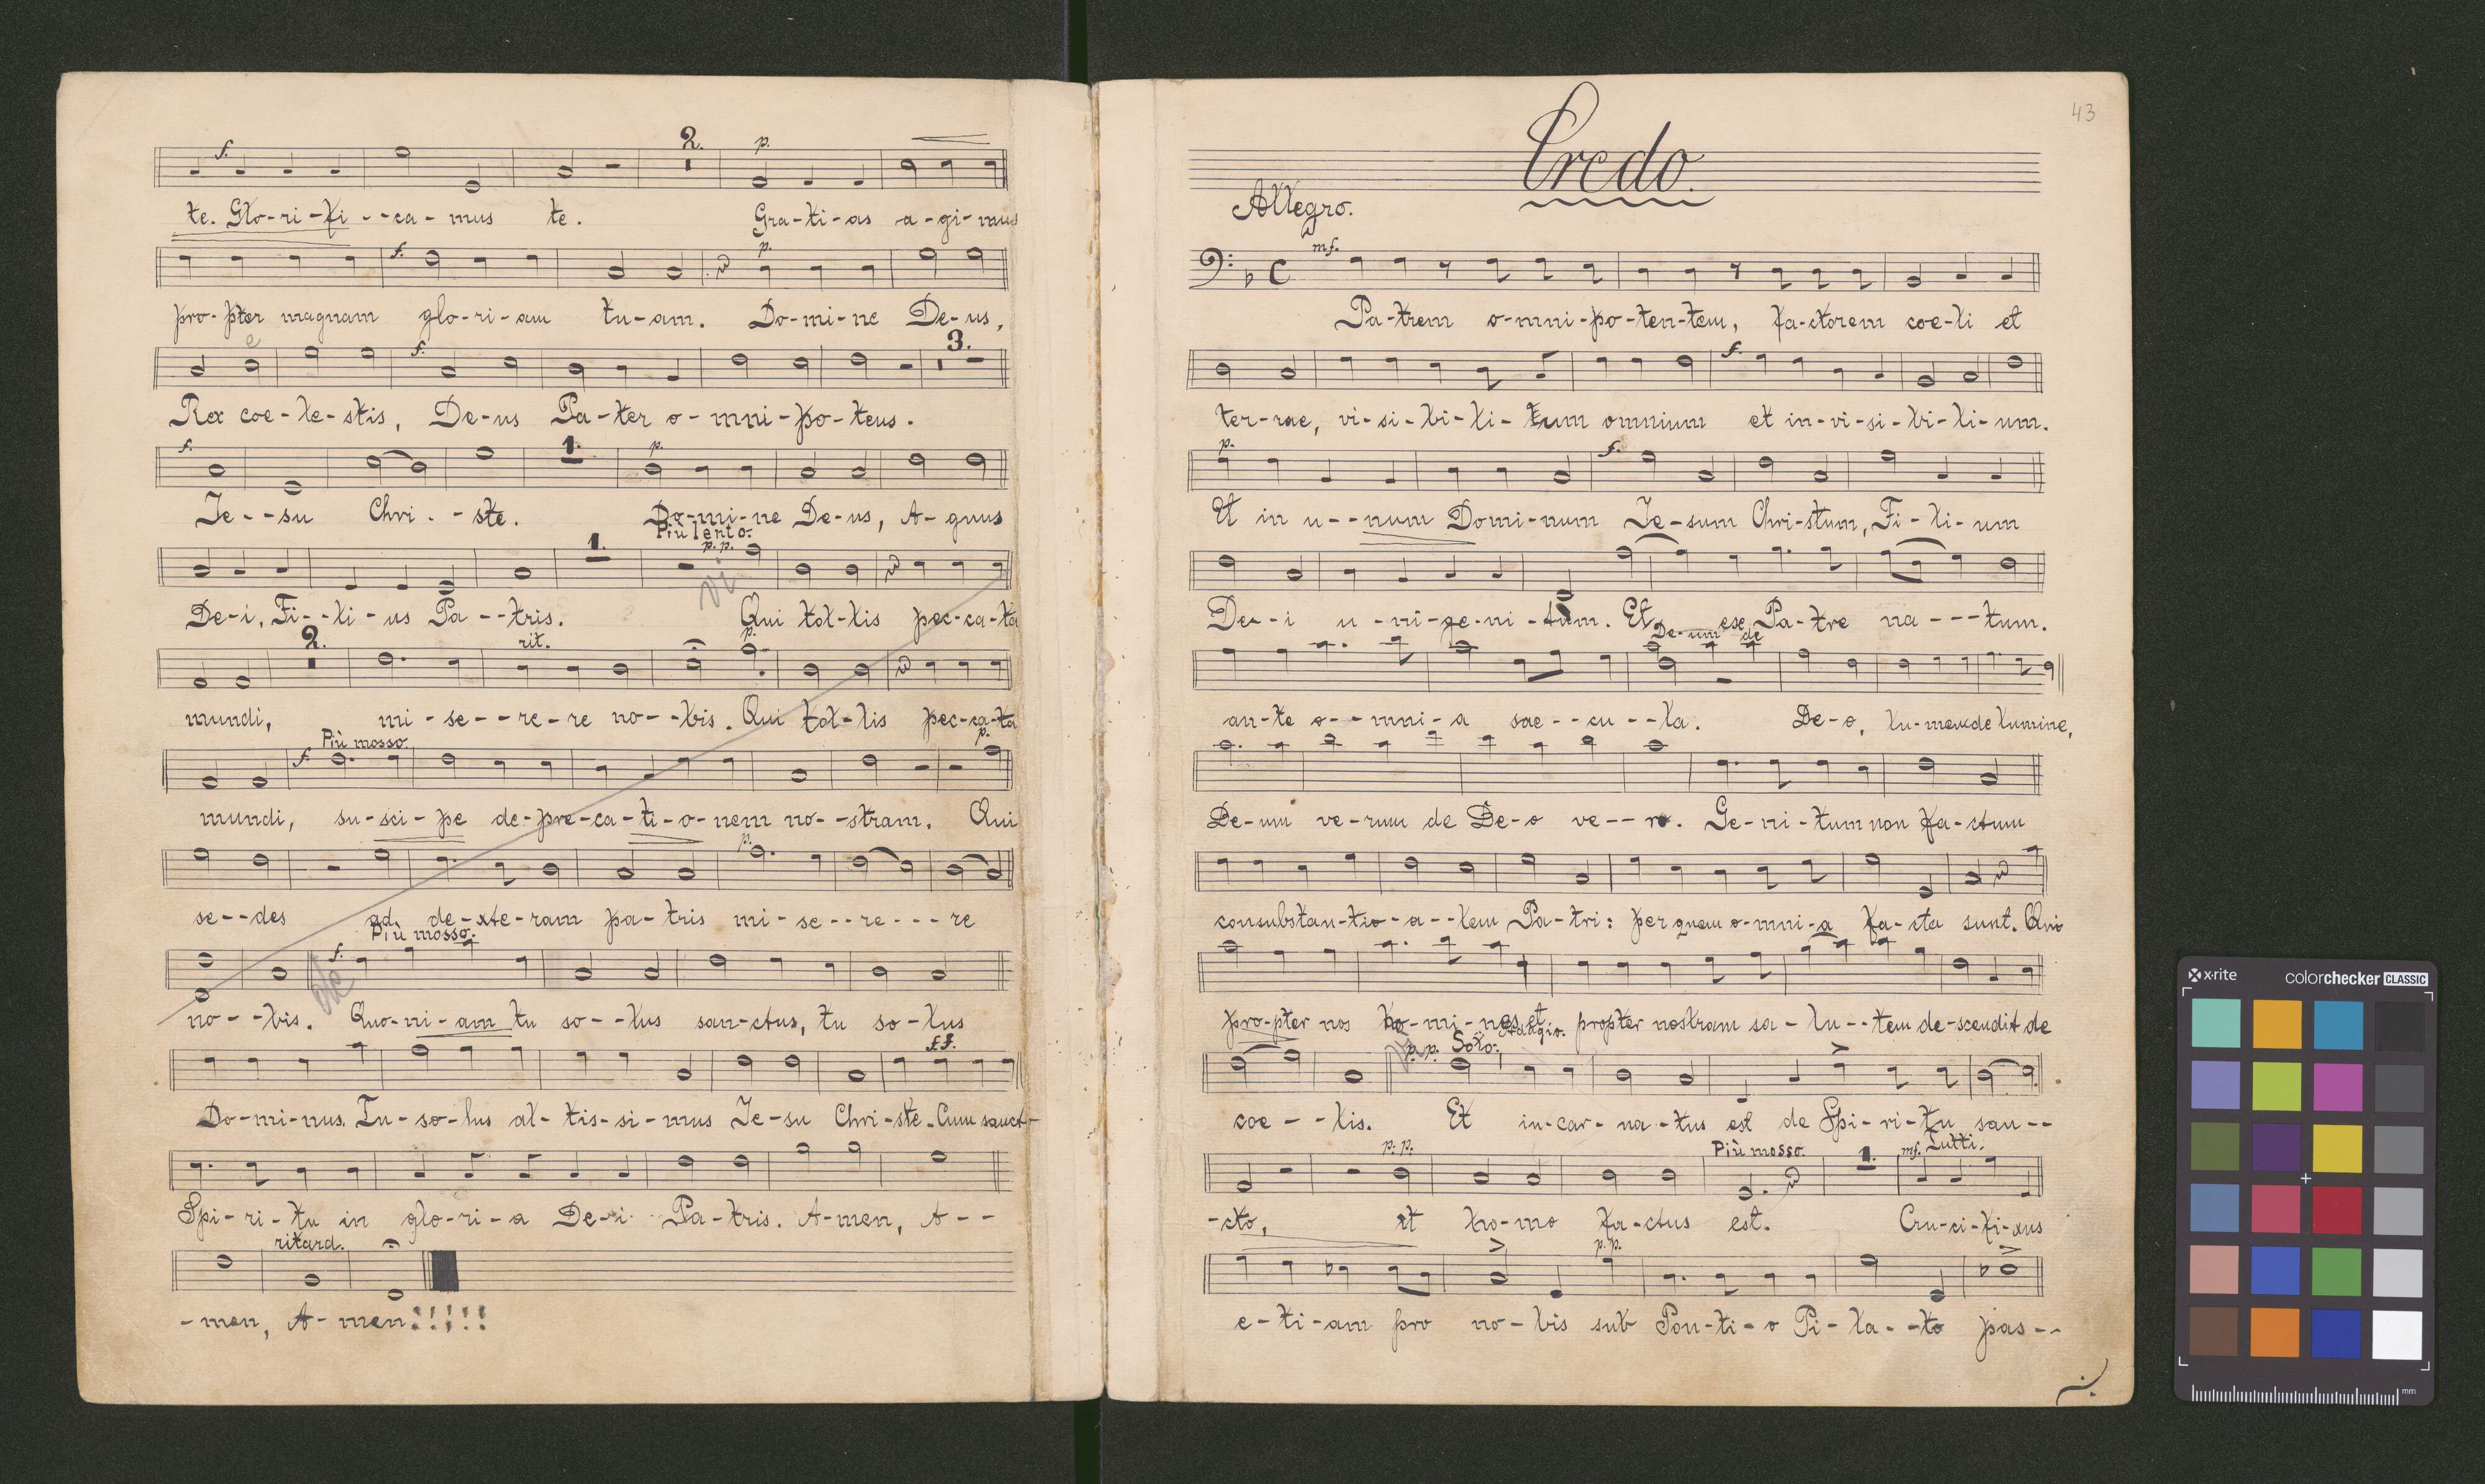 f.
2.
p.
te. Glo-ri-fi--ca-mus te. Gra-ti-as a-gi-mus
f.
p.
pro-pter magnam glo-ri-am tu-am. Do-mi-ne De-us,
e
f.
3.
Rex coe-le-stis, De-us Pa-ter o-mni-po-tens.
f.
1.
p.
Je--su Chri--ste. Do-mi-ne De-us, A-gnus
Più lento.
1.
p.p.
vi
De-i, Fi--li-us Pa--tris. Qui tol-lis pec-ca-ta
2.
rit.
p.
mundi, mi-se--re-re no--bis. Qui tol-lis pec-ca-ta
Più mosso.
f.
p.
mundi, su-sci-pe de-pre-ca-ti-o-nem no--stram. Qui
p.
se--des ad de-xte-ram pa-tris mi-se--re---re
Più mosso.
f.
de
no--bis. Quo-ni-am tu so--lus san-ctus, tu so-lus
f.f.
Do-mi-nus. Tu-so-lus al-tis-si-mus Je-su Chri-ste. Cum sanct-
Spi-ri-tu in glo-ri-a De-i Pa-tris. A-men, A--
ritard.
-men, A-men!!!!!
43
Credo.
Allegro.
C
mf.
Pa-trem o-mni-po-ten-tem, fa-ctorem coe-li et
f.
ter-rae, vi-si-bi-li-tum omnium et in-vi-si-bi-li-um.
p.
f.
Et in u--num Domi-num Je-sum Chri-stum, Fi-li-um
De--i u-ni-ge-ni-tum. Et ex Pa-tre na---tum.
De-um de
an-te o--mni-a sae--cu--la. De-o, lu-men de lumine,
De-um ve-rum de De-o ve--ro. Ge-ni-tum non fa-ctum
consubstan-tio-a--lem Pa-tri: per quem o-mni-a fa-cta sunt. Qui
pro-pter nos ho-mi-nes et propter nostram sa-lu--tem de-scendit de
Adagio.
p.p. Solo.
coe--lis. Et in-car-na-tus est de Spi-ri-tu san--
p.p.
Più mosso.
1.
mf. Tutti.
-cto, et ho-mo fa-ctus est. Cru-ci-fi-xus
p.p.
e-ti-am pro no-bis sub Pon-ti-o Pi-la--to pas--
x-rite
colorchecker CLASSIC
mm